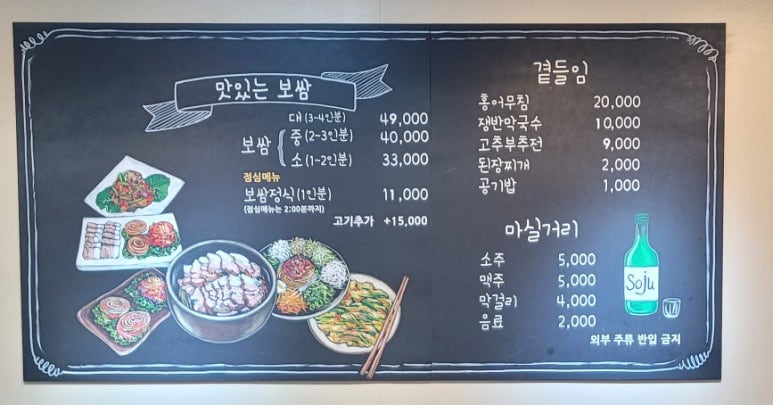 맛있는 보쌈
대 (3-4인분) 49,000
보쌈 중 (2~3인분) 40,000
소 (1~2인분) 33,000
점심메뉴
보쌈정식 (1인분) 11,000
(점심메뉴는 2:00분까지)
고기추가 +15,000
곁들임
홍어무침 20,000
쟁반막국수 10,000
고추부추전 9,000
된장찌개 2,000
공기밥 1,000
마실거리
소주 5,000
맥주 5,000
막걸리 4,000
음료 2,000
Soju
외부 주류 반입 금지